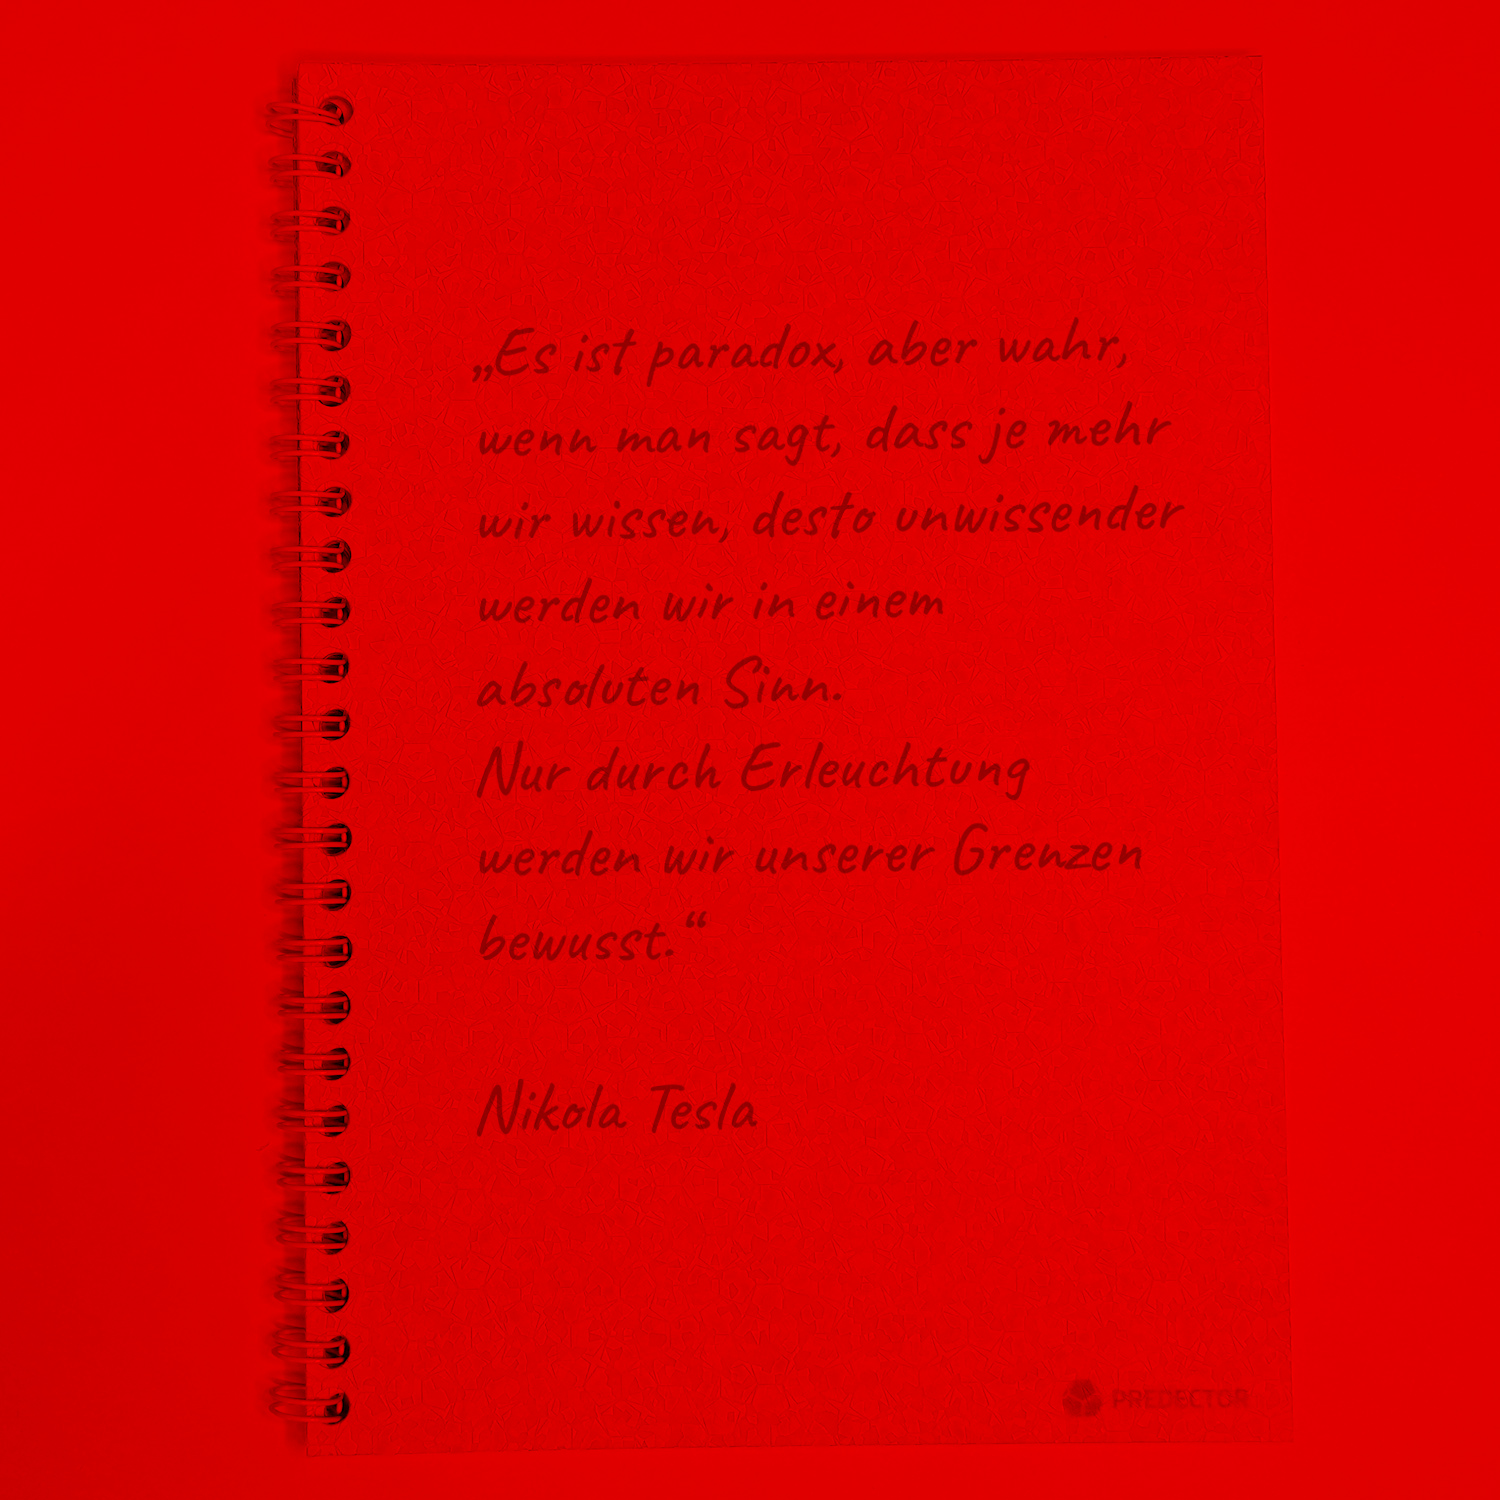 „Es ist paradox, aber wahr,
wenn man sagt, dass je mehr
wir wissen, desto unwissender
werden wir in einem
absoluten Sinn.
Nur durch Erleuchtung
werden wir unserer Grenzen
bewusst.“
Nikola Tesla
PREDECTOR